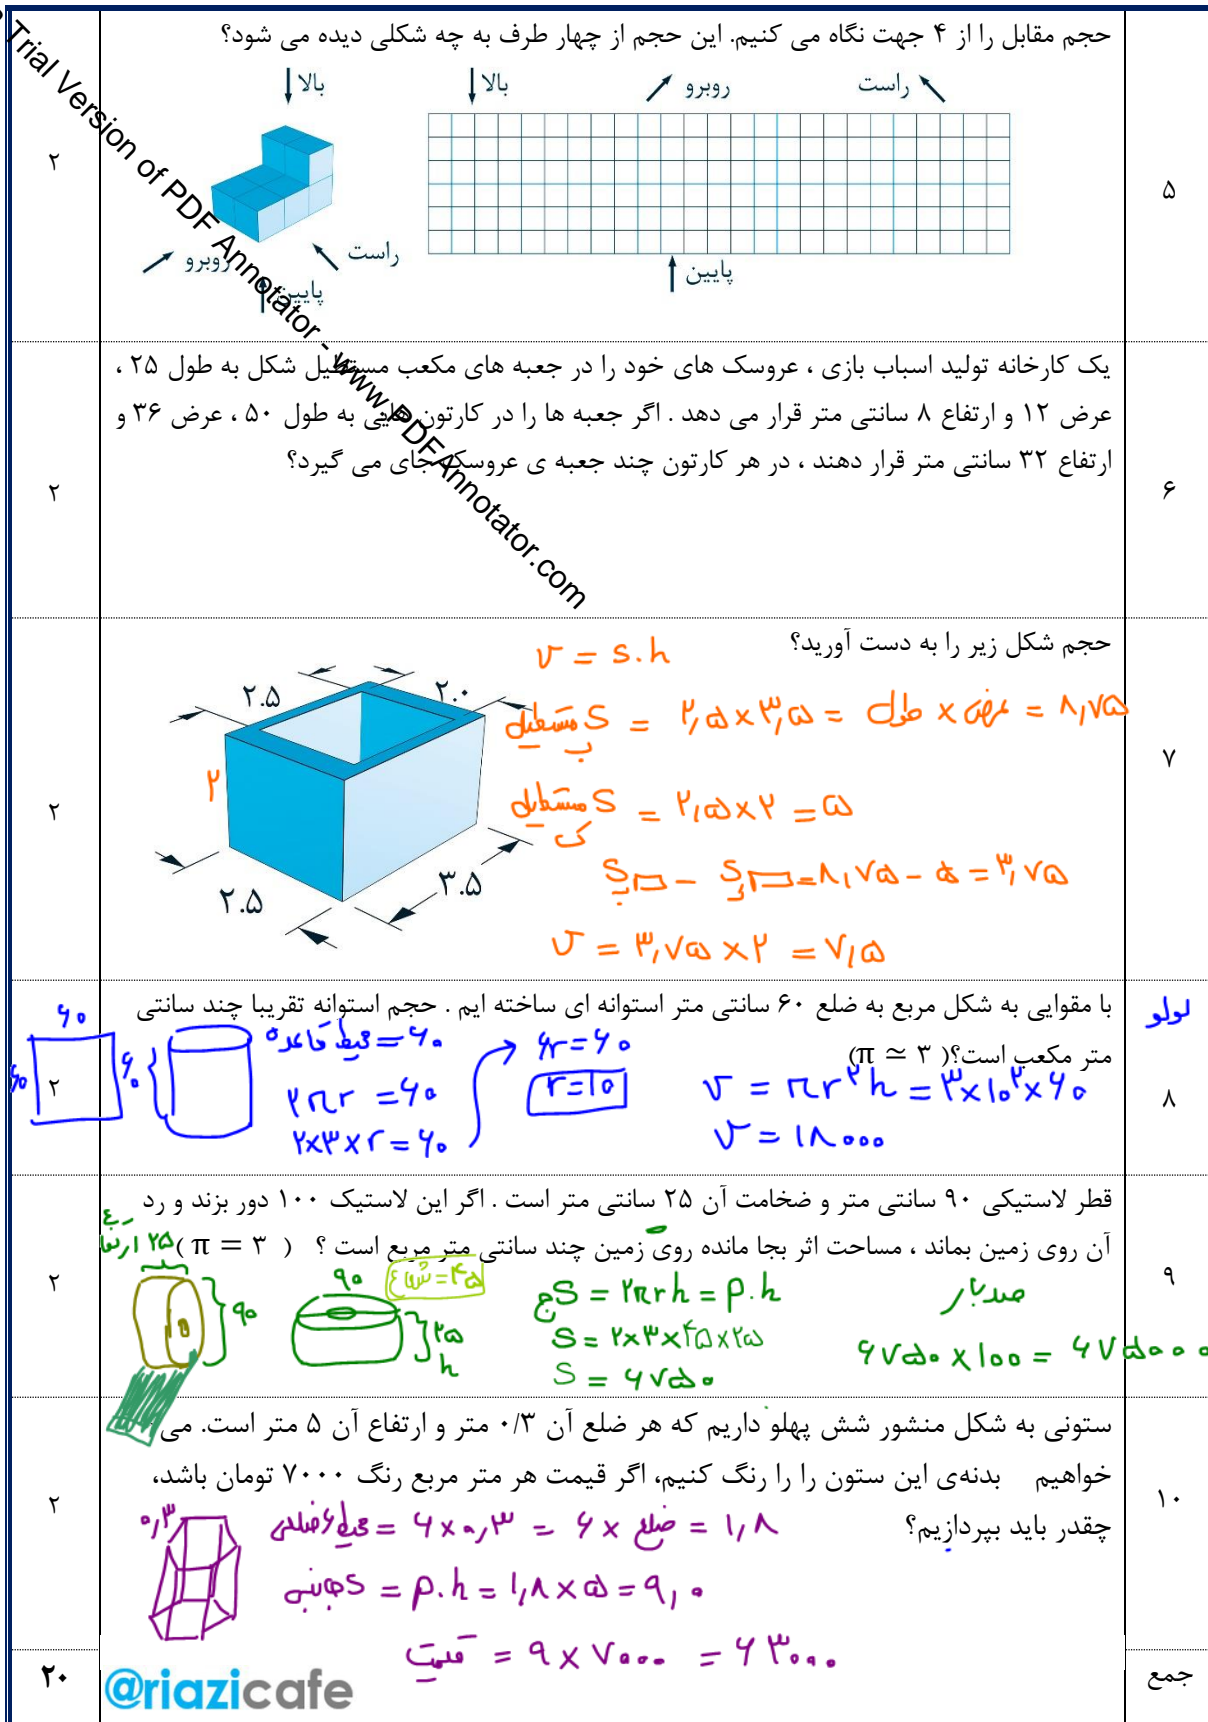 Trial Version of PDF Annotator - www.PDFAnnotator.com
۵
حجم مقابل را از ۴ جهت نگاه می کنیم. این حجم از چهار طرف به چه شکلی دیده می شود؟
۲
بالا
بالا
روبرو
راست
راست
روبرو
پایین
پایین
۶
یک کارخانه تولید اسباب بازی ، عروسک های خود را در جعبه های مکعب مستطیل شکل به طول ۲۵ ،
عرض ۱۲ و ارتفاع ۸ سانتی متر قرار می دهد . اگر جعبه ها را در کارتون هایی به طول ۵۰ ، عرض ۳۶ و
ارتفاع ۳۲ سانتی متر قرار دهند ، در هر کارتون چند جعبه ی عروسک جای می گیرد؟
۲
۷
حجم شکل زیر را به دست آورید؟
۲
۲.۵
۲.۰
۲
۲.۵
۳.۵
v = s.h
S مستطیل ب = ۲٫۵×۳٫۵ = طول × عرض = ۸٫۷۵
S مستطیل ک = ۲٫۵×۲ = ۵
S ب - S ک = ۸٫۷۵ - ۵ = ۳٫۷۵
v = ۳٫۷۵ × ۲ = ۷٫۵
لولو
۸
با مقوایی به شکل مربع به ضلع ۶۰ سانتی متر استوانه ای ساخته ایم . حجم استوانه تقریبا چند سانتی
متر مکعب است؟( π ≃ ۳)
۲
۶۰
۶۰
۶۰
محیط قاعده = ۶۰
۲πr = ۶۰
۲×۳×r = ۶۰
۶r = ۶۰
r = ۱۰
v = πr²h = ۳×۱۰²×۶۰
v = ۱۸۰۰۰
۹
قطر لاستیکی ۹۰ سانتی متر و ضخامت آن ۲۵ سانتی متر است . اگر این لاستیک ۱۰۰ دور بزند و رد
آن روی زمین بماند ، مساحت اثر بجا مانده روی زمین چند سانتی متر مربع است ؟ ( π = ۳)
۲
۲۵ ارتفاع
۹۰
۹۰
شعاع = ۴۵
۲۵
h
S ج = ۲πrh = p.h
S = ۲×۳×۴۵×۲۵
S = ۶۷۵۰
صد بار
۶۷۵۰ × ۱۰۰ = ۶۷۵۰۰۰
۱۰
ستونی به شکل منشور شش پهلو داریم که هر ضلع آن ۰/۳ متر و ارتفاع آن ۵ متر است. می
خواهیم بدنه‌ی این ستون را را رنگ کنیم، اگر قیمت هر متر مربع رنگ ۷۰۰۰ تومان باشد،
چقدر باید بپردازیم؟
۲
۰٫۳
محیط ۶ ضلعی = ۶×۰٫۳ = ۶ × ضلع = ۱٫۸
S جانبی = p.h = ۱٫۸×۵ = ۹٫۰
قیمت = ۹ × ۷۰۰۰ = ۶۳۰۰۰
جمع
۲۰
@riazicafe